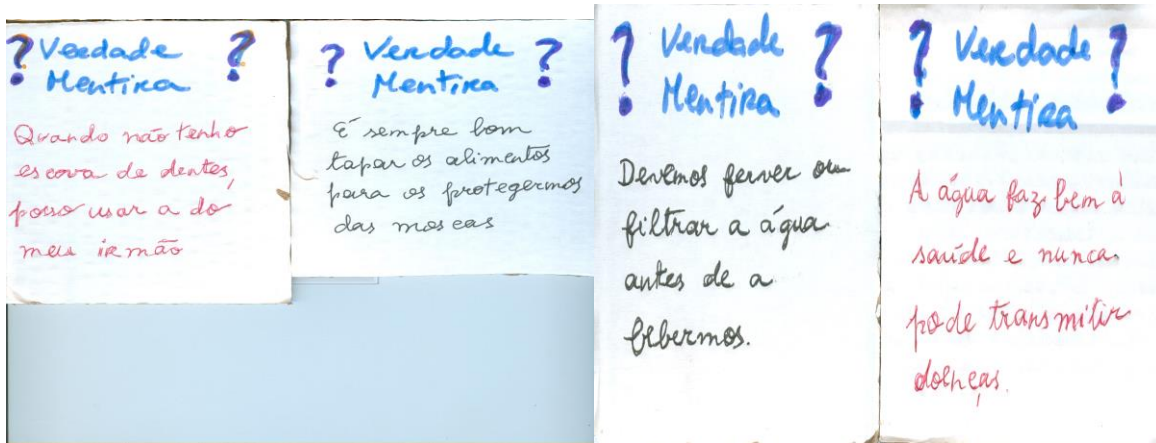 ? Verdade ?
Mentira
Quando não tenho
escova de dentes,
posso usar a do
meu irmão
? Verdade ?
Mentira
É sempre bom
tapar os alimentos
para os protegermos
das moscas
? Verdade ?
Mentira
Devemos ferver ou
filtrar a água
antes de a
bebermos.
? Verdade ?
Mentira
A água faz bem à
saúde e nunca
pode transmitir
doenças.